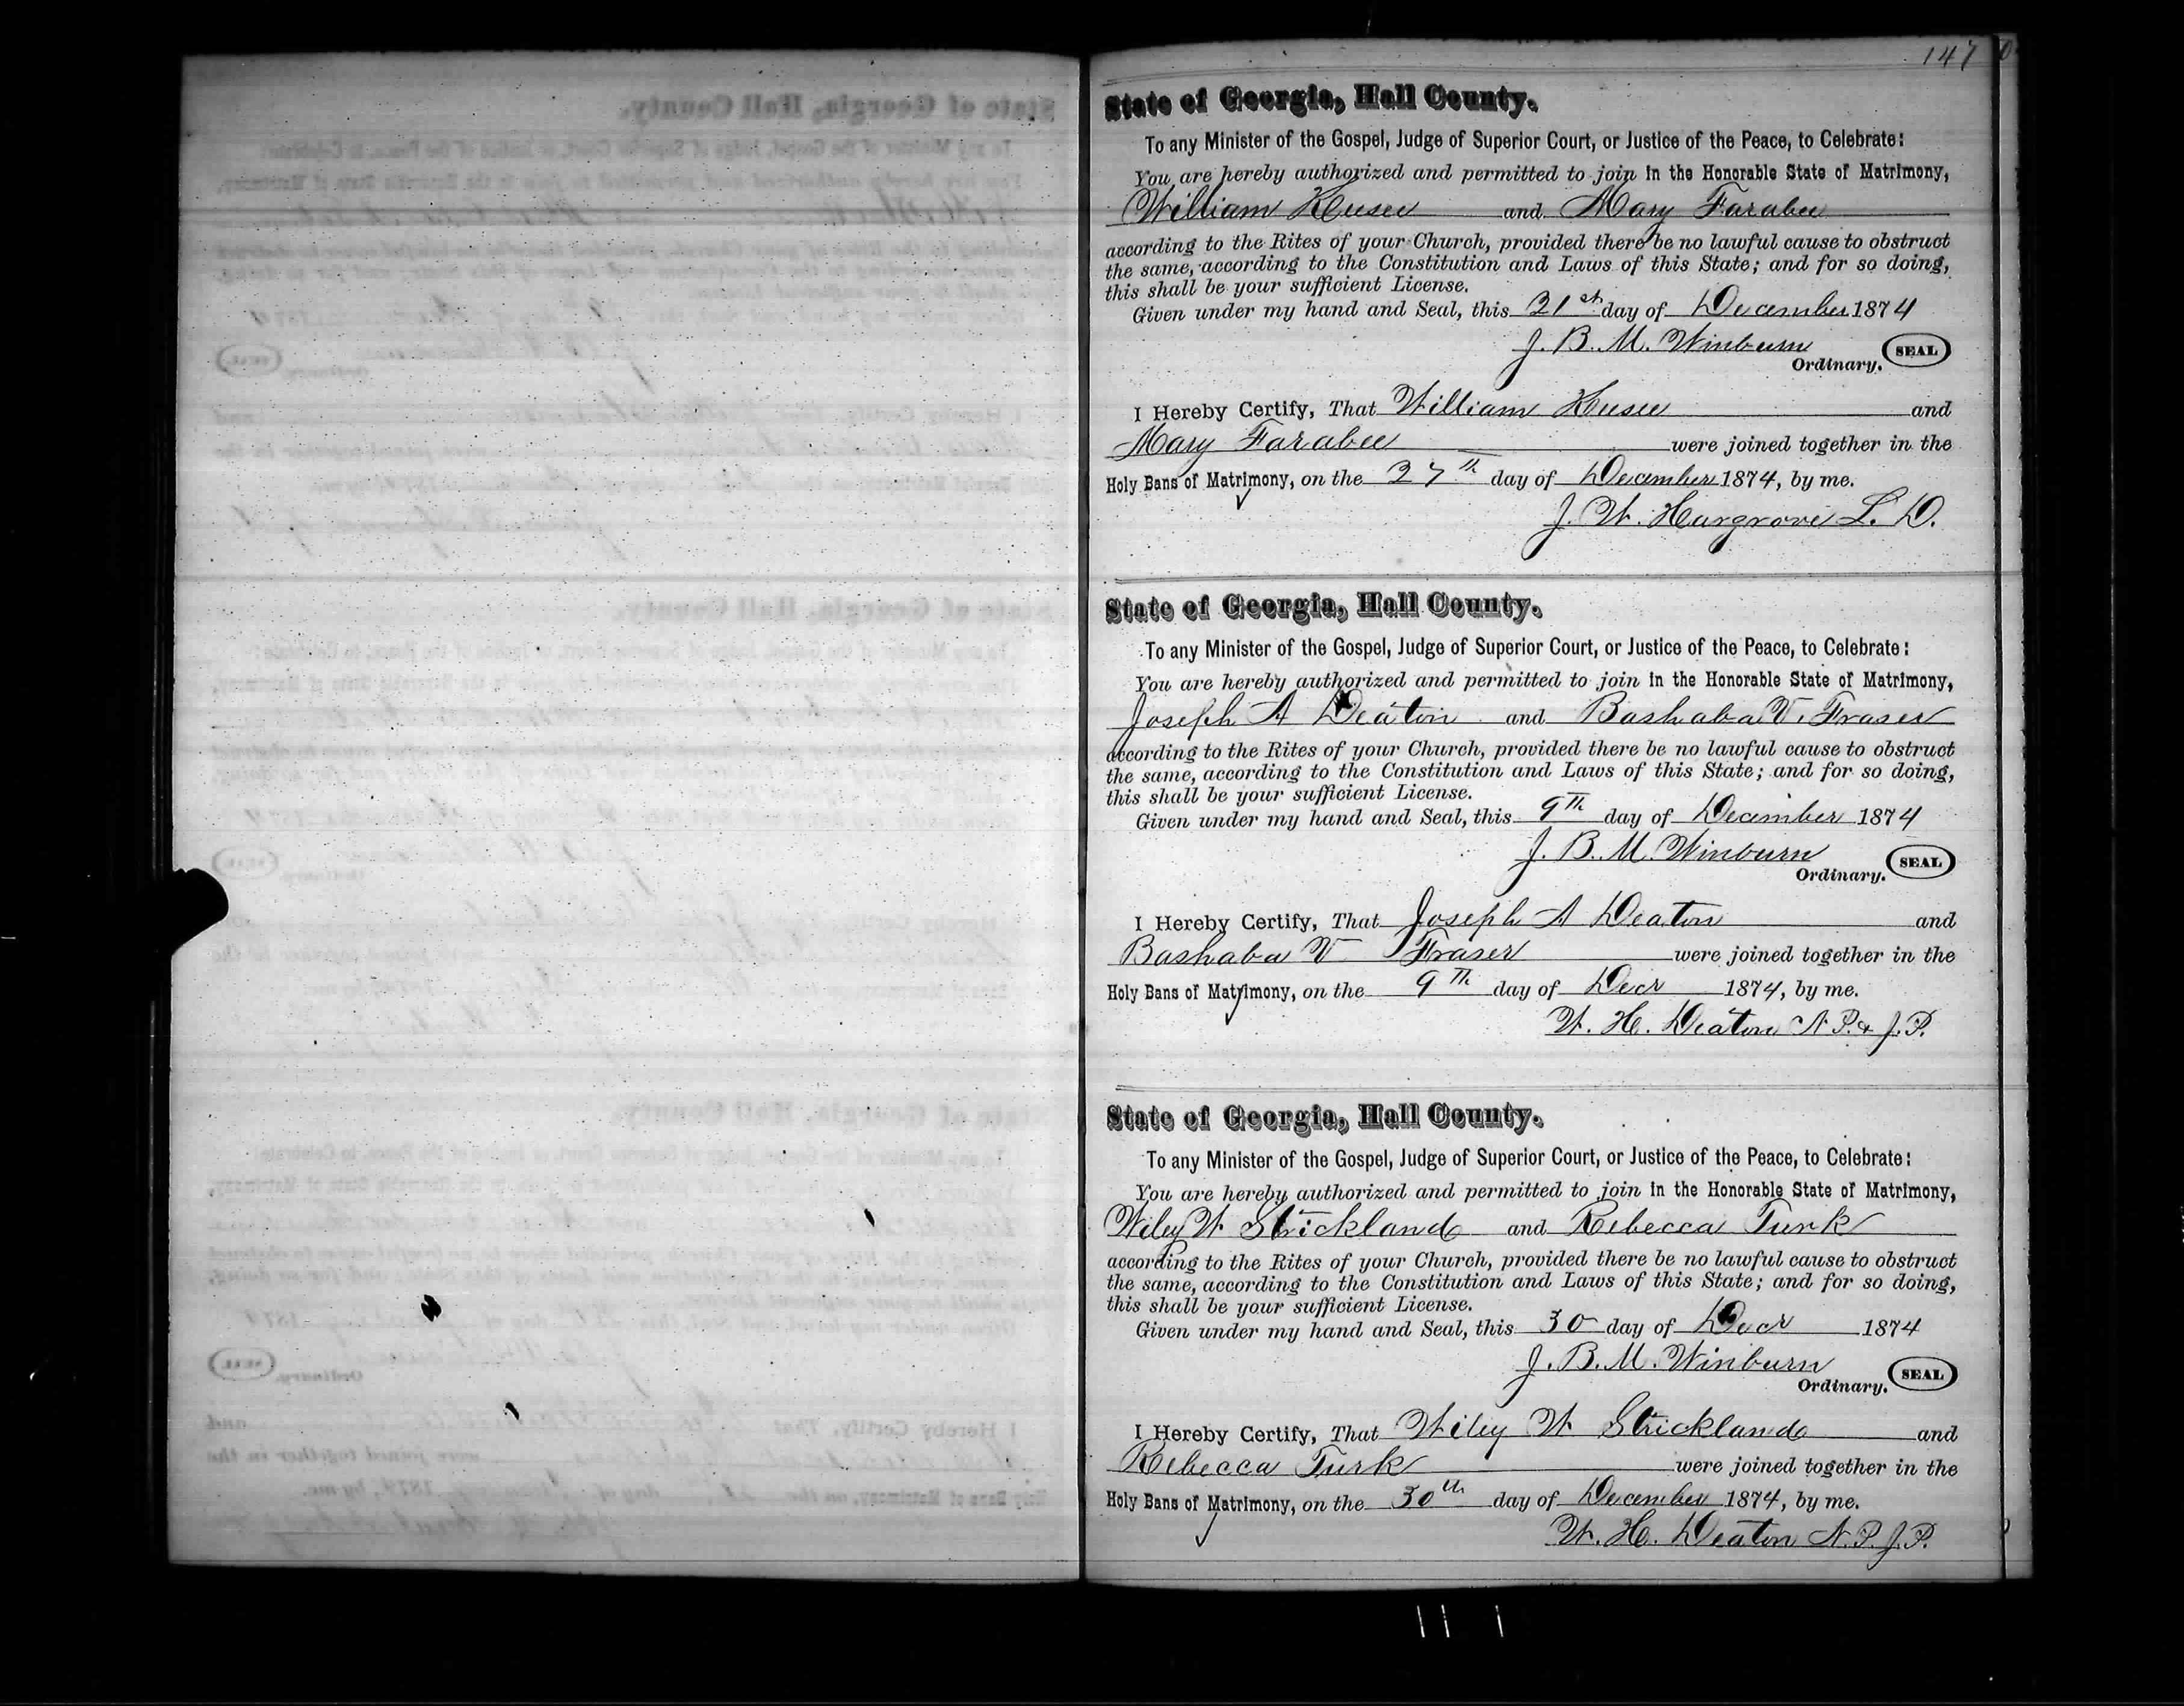 147
State of Georgia, Hall County.
To any Minister of the Gospel, Judge of Superior Court, or Justice of the Peace, to Celebrate:
You are hereby authorized and permitted to join in the Honorable State of Matrimony,
William and Mary Farabee
according to the Rites of your Church, provided there be no lawful cause to obstruct
the same, according to the Constitution and Laws of this State; and for so doing,
this shall be your sufficient License.
Given under my hand and Seal, this 21st day of December 1874
J. B. M. Winburn
Ordinary. SEAL
I Hereby Certify, That William and
Mary Farabee were joined together in the
Holy Bans of Matrimony, on the 27th day of December 1874, by me.
J. W. Hargrove L. D.
State of Georgia, Hall County.
To any Minister of the Gospel, Judge of Superior Court, or Justice of the Peace, to Celebrate:
You are hereby authorized and permitted to join in the Honorable State of Matrimony,
Joseph A Deaton and Bashaba V. Fraser
according to the Rites of your Church, provided there be no lawful cause to obstruct
the same, according to the Constitution and Laws of this State; and for so doing,
this shall be your sufficient License.
Given under my hand and Seal, this 9th day of December 1874
J. B. M. Winburn
Ordinary. SEAL
I Hereby Certify, That Joseph A Deaton and
Bashaba V Fraser were joined together in the
Holy Bans of Matrimony, on the 9th day of Decr 1874, by me.
W. H. Deaton N. P. & J. P.
State of Georgia, Hall County.
To any Minister of the Gospel, Judge of Superior Court, or Justice of the Peace, to Celebrate:
You are hereby authorized and permitted to join in the Honorable State of Matrimony,
Wiley W Strickland and Rebecca Turk
according to the Rites of your Church, provided there be no lawful cause to obstruct
the same, according to the Constitution and Laws of this State; and for so doing,
this shall be your sufficient License.
Given under my hand and Seal, this 30 day of Decr 1874
J. B. M. Winburn
Ordinary. SEAL
I Hereby Certify, That Wiley W Strickland and
Rebecca Turk were joined together in the
Holy Bans of Matrimony, on the 30th day of December 1874, by me.
W. H. Deaton N. P. J. P.